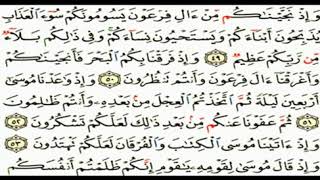 وَإِذْ نَجَّيْنَٰكُم مِّنْ ءَالِ فِرْعَوْنَ يَسُومُونَكُمْ سُوٓءَ ٱلْعَذَابِ
يُذَبِّحُونَ أَبْنَآءَكُمْ وَيَسْتَحْيُونَ نِسَآءَكُمْ وَفِى ذَٰلِكُم بَلَآءٌ
مِّن رَّبِّكُمْ عَظِيمٌ ۝٤٩ وَإِذْ فَرَقْنَا بِكُمُ ٱلْبَحْرَ فَأَنجَيْنَٰكُمْ
وَأَغْرَقْنَآ ءَالَ فِرْعَوْنَ وَأَنتُمْ تَنظُرُونَ ۝٥٠ وَإِذْ وَٰعَدْنَا مُوسَىٰٓ
أَرْبَعِينَ لَيْلَةً ثُمَّ ٱتَّخَذْتُمُ ٱلْعِجْلَ مِنۢ بَعْدِهِۦ وَأَنتُمْ ظَٰلِمُونَ
۝٥١ ثُمَّ عَفَوْنَا عَنكُم مِّنۢ بَعْدِ ذَٰلِكَ لَعَلَّكُمْ تَشْكُرُونَ ۝٥٢
وَإِذْ ءَاتَيْنَا مُوسَى ٱلْكِتَٰبَ وَٱلْفُرْقَانَ لَعَلَّكُمْ تَهْتَدُونَ ۝٥٣
وَإِذْ قَالَ مُوسَىٰ لِقَوْمِهِۦ يَٰقَوْمِ إِنَّكُمْ ظَلَمْتُمْ أَنفُسَكُم